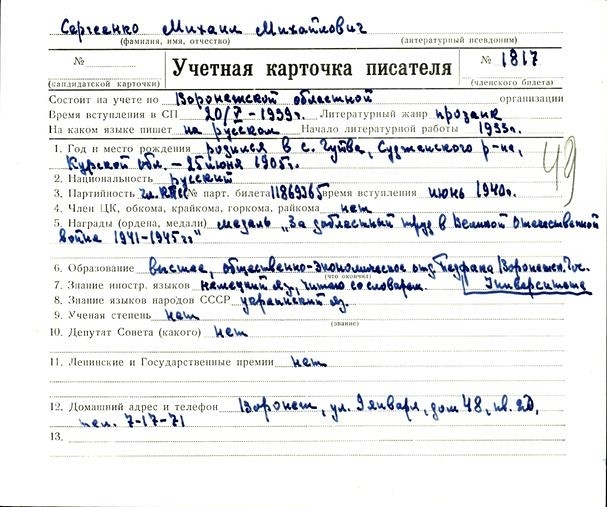 Сергеенко Михаил Михайлович
(фамилия, имя, отчество) (литературный псевдоним)
№ Учетная карточка писателя № 1817
(кандидатской карточки) (членского билета)
Состоит на учете по Воронежской областной организации
Время вступления в СП 20/X-1939г. Литературный жанр прозаик
На каком языке пишет на русском Начало литературной работы 1933г.
1. Год и место рождения родился в с. Суджанского р-на,
Курской обл. – 25 июня 1905г.
49
2. Национальность русский
3. Партийность чл. КПСС № парт. билета 11869365 время вступления июнь 1940г.
4. Член ЦК, обкома, крайкома, горкома, райкома нет
5. Награды (ордена, медали) медаль „За доблестный труд в Великой Отечественной
войне 1941-1945гг"
6. Образование высшее, общественно-экономическое отд. Педфака Воронежск. Гос.
(что окончил)
Университета
7. Знание иностр. языков немецкий яз., читаю со словарем.
8. Знание языков народов СССР украинский яз.
9. Ученая степень нет
(звание)
10. Депутат Совета (какого) нет
11. Ленинские и Государственные премии нет
12. Домашний адрес и телефон Воронеж, ул. 9 января, дом 48, кв. 20,
тел. 7-17-71
13.